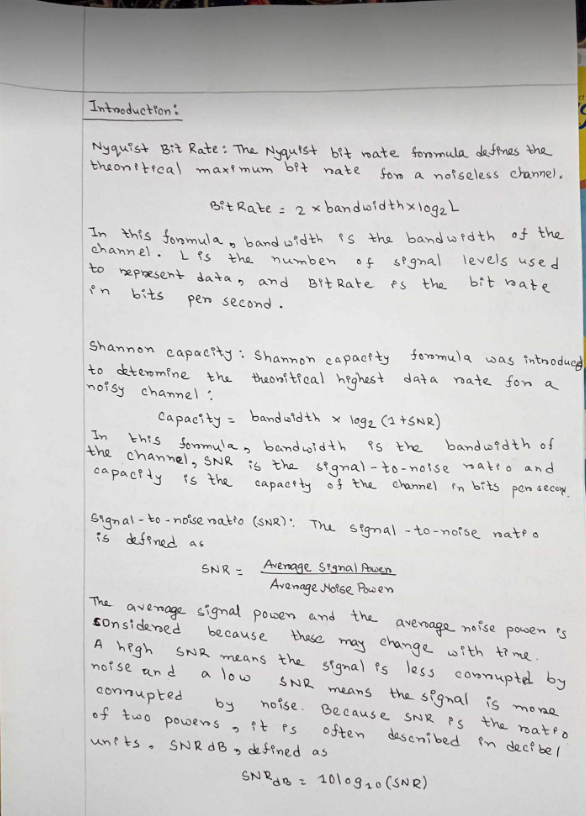 Introduction:
Nyquist Bit Rate: The Nyquist bit rate formula defines the
theoritical maximum bit rate for a noiseless channel.
Bit Rate = 2 × bandwidth × log₂ L
In this formula, bandwidth is the bandwidth of the
channel. L is the number of signal levels used
to represent data, and Bit Rate is the bit rate
in bits per second.
Shannon capacity: Shannon capacity formula was introduced
to determine the theoritical highest data rate for a
noisy channel:
Capacity = bandwidth × log₂ (1 + SNR)
In this formula, bandwidth is the bandwidth of
the channel, SNR is the signal-to-noise ratio and
capacity is the capacity of the channel in bits per secon
Signal-to-noise ratio (SNR): The signal-to-noise ratio
is defined as
SNR = Average Signal Power
Average Noise Power
The average signal power and the average noise power is
considered because these may change with time.
A high SNR means the signal is less corrupted by
noise and a low SNR means the signal is more
corrupted by noise. Because SNR is the ratio
of two powers, it is often described in decibel
units. SNR dB, defined as
SNR dB = 10log₁₀ (SNR)